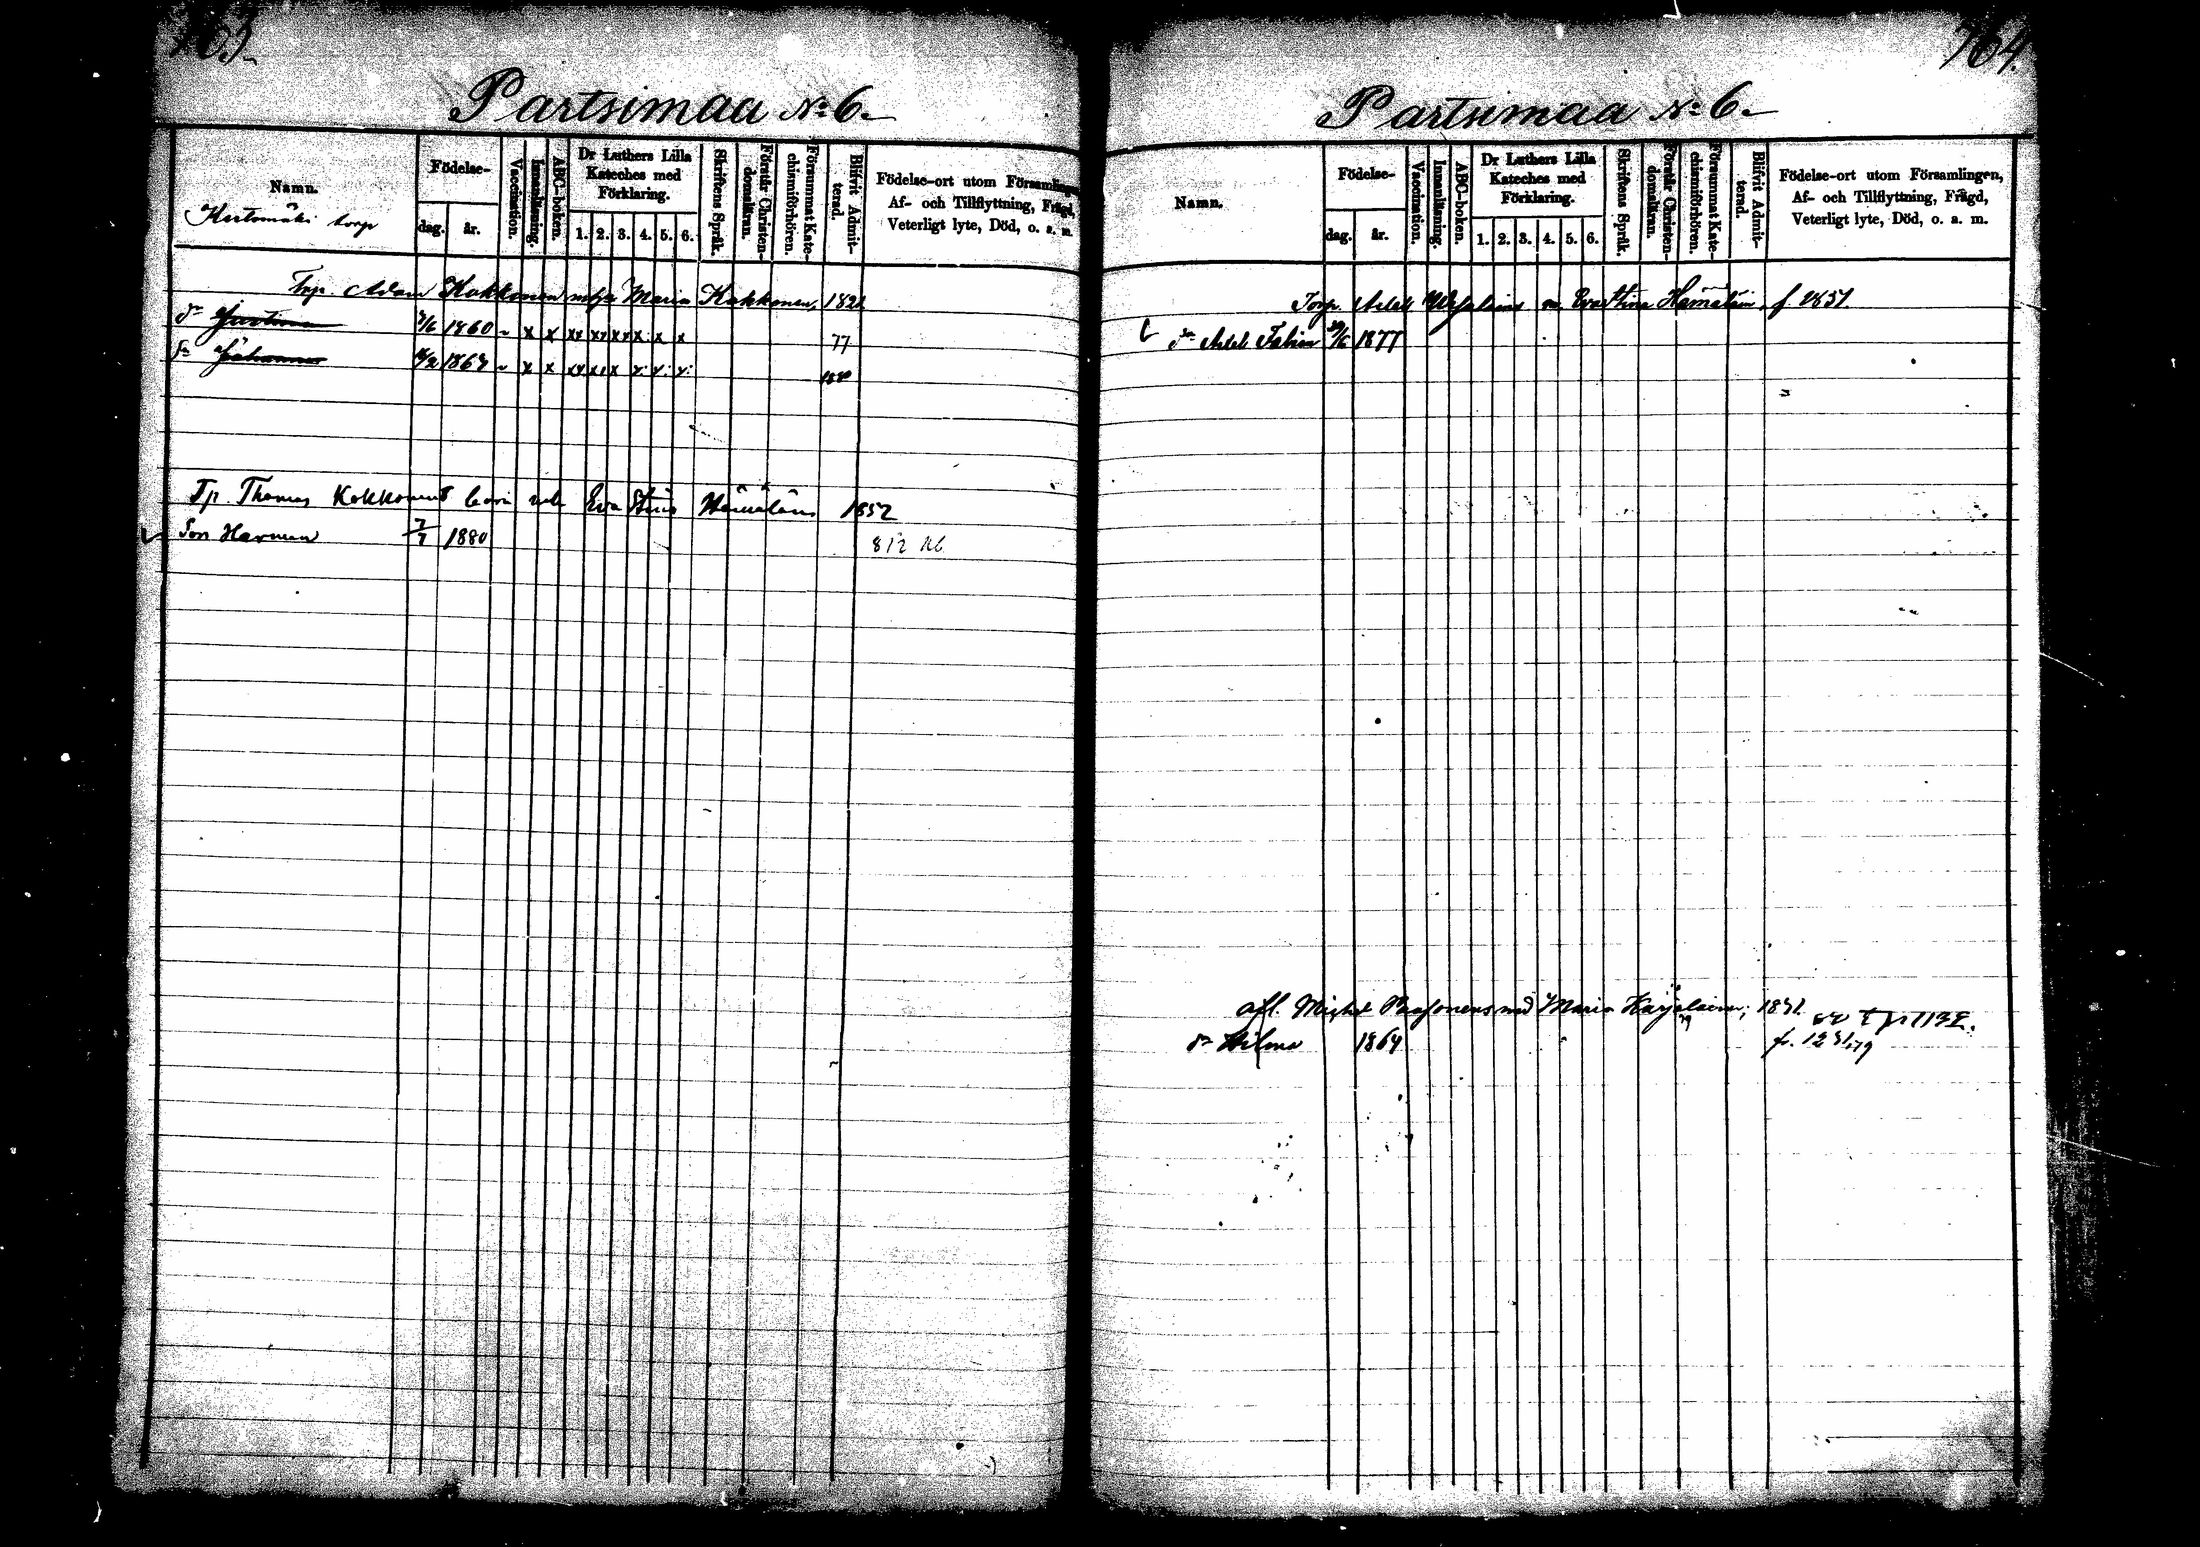 763.
Partsimaa No 6.
Namn.
Födelse-
dag.
år.
Vaccination.
Innanläsning.
ABC-boken.
Dr Luthers Lilla Kateches med Förklaring.
1. 2. 3. 4. 5. 6.
Skriftens Språk.
Förstår Christendomsläran.
Försummat Katechismiförhören.
Blifvit Admitterad.
Födelse-ort utom Församlingen,
Af- och Tillflyttning, Frägd,
Veterligt lyte, Död, o. a. m.
torp
Torp. Adam Kokkonen Maria Kokkonen, 1821
dr Justina 1860 x x xx xx xx x x x 77
sn Johannes 1867 x x xx x x x x: x: x: 1880
Tp. Thomas Kokkonens Eva Stina Hämäläin 1852
Son Herman 7/7 1880 812
764.
Partsimaa No 6.
Namn.
Födelse-
dag.
år.
Vaccination.
Innanläsning.
ABC-boken.
Dr Luthers Lilla Kateches med Förklaring.
1. 2. 3. 4. 5. 6.
Skriftens Språk.
Förstår Christendomsläran.
Försummat Katechismiförhören.
Blifvit Admitterad.
Födelse-ort utom Församlingen,
Af- och Tillflyttning, Frägd,
Veterligt lyte, Död, o. a. m.
Torp. m. Eva Stina Hämäläin, f 1851.
1877
afl. Michel Paasonens med Maria Karjalainen; 1832
dr Hilma 1864 p. 1231